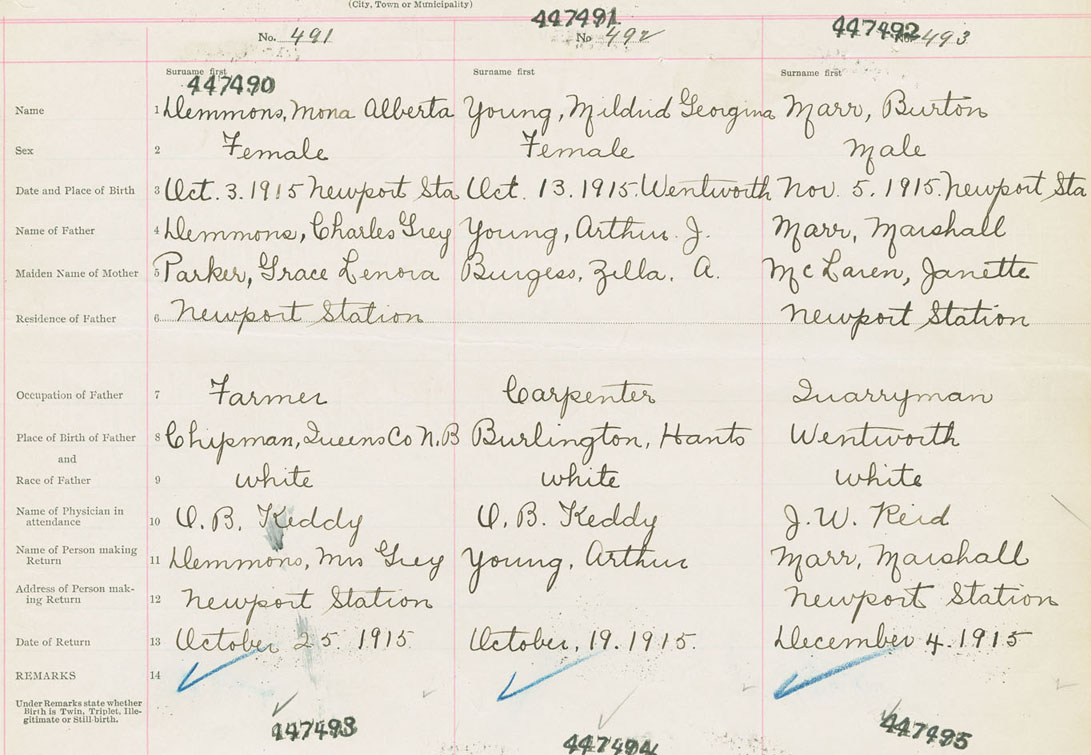 (City, Town or Municipality)
447491
447492
No. 491
No 492
No. 493
Surname first
Surname first
Surname first
447490
Name 1 Demmons, Mona Alberta Young, Mildrid Georgina Marr, Burton
Sex 2 Female Female Male
Date and Place of Birth 3 Oct. 3. 1915 Newport Sta Oct. 13. 1915. Wentworth Nov. 5. 1915. Newport Sta
Name of Father 4 Demmons, Charles Grey Young, Arthur. J. Marr, Marshall
Maiden Name of Mother 5 Parker, Grace Lenora Burgess, Zilla. A. McLaren, Janette
Residence of Father 6 Newport Station Newport Station
Occupation of Father 7 Farmer Carpenter Quarryman
Place of Birth of Father 8 Chipman, Queens Co N.B Burlington, Hants Wentworth
and
Race of Father 9 White White White
Name of Physician in
attendance 10 O. B. Keddy O. B. Keddy J. W. Reid
Name of Person making
Return 11 Demmons, Mrs Grey Young, Arthur Marr, Marshall
Address of Person mak-
ing Return 12 Newport Station Newport Station
Date of Return 13 October 25. 1915. October, 19. 1915. December 4. 1915
REMARKS 14
Under Remarks state whether
Birth is Twin, Triplet, Ille-
gitimate or Still-birth.
447493
447494
447495